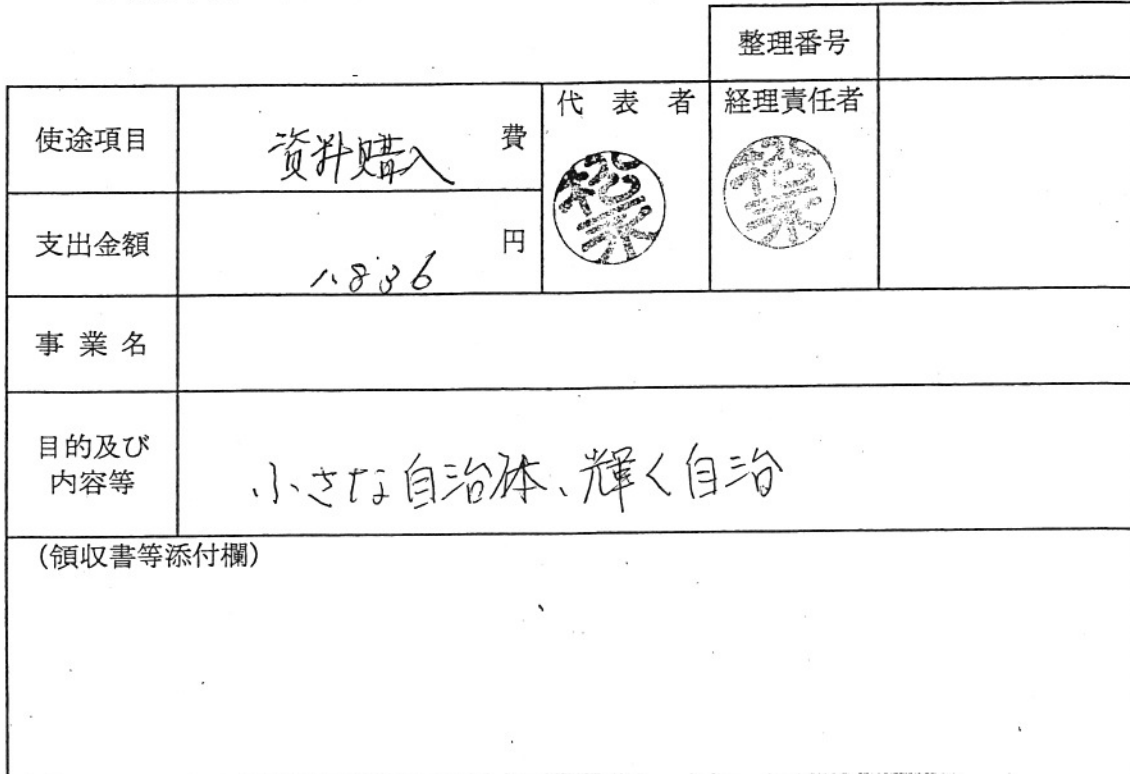 整理番号
使途項目
資料購入
費
代表者
経理責任者
支出金額
1,836
円
事業名
目的及び
内容等
小さな自治体、輝く自治
(領収書等添付欄)